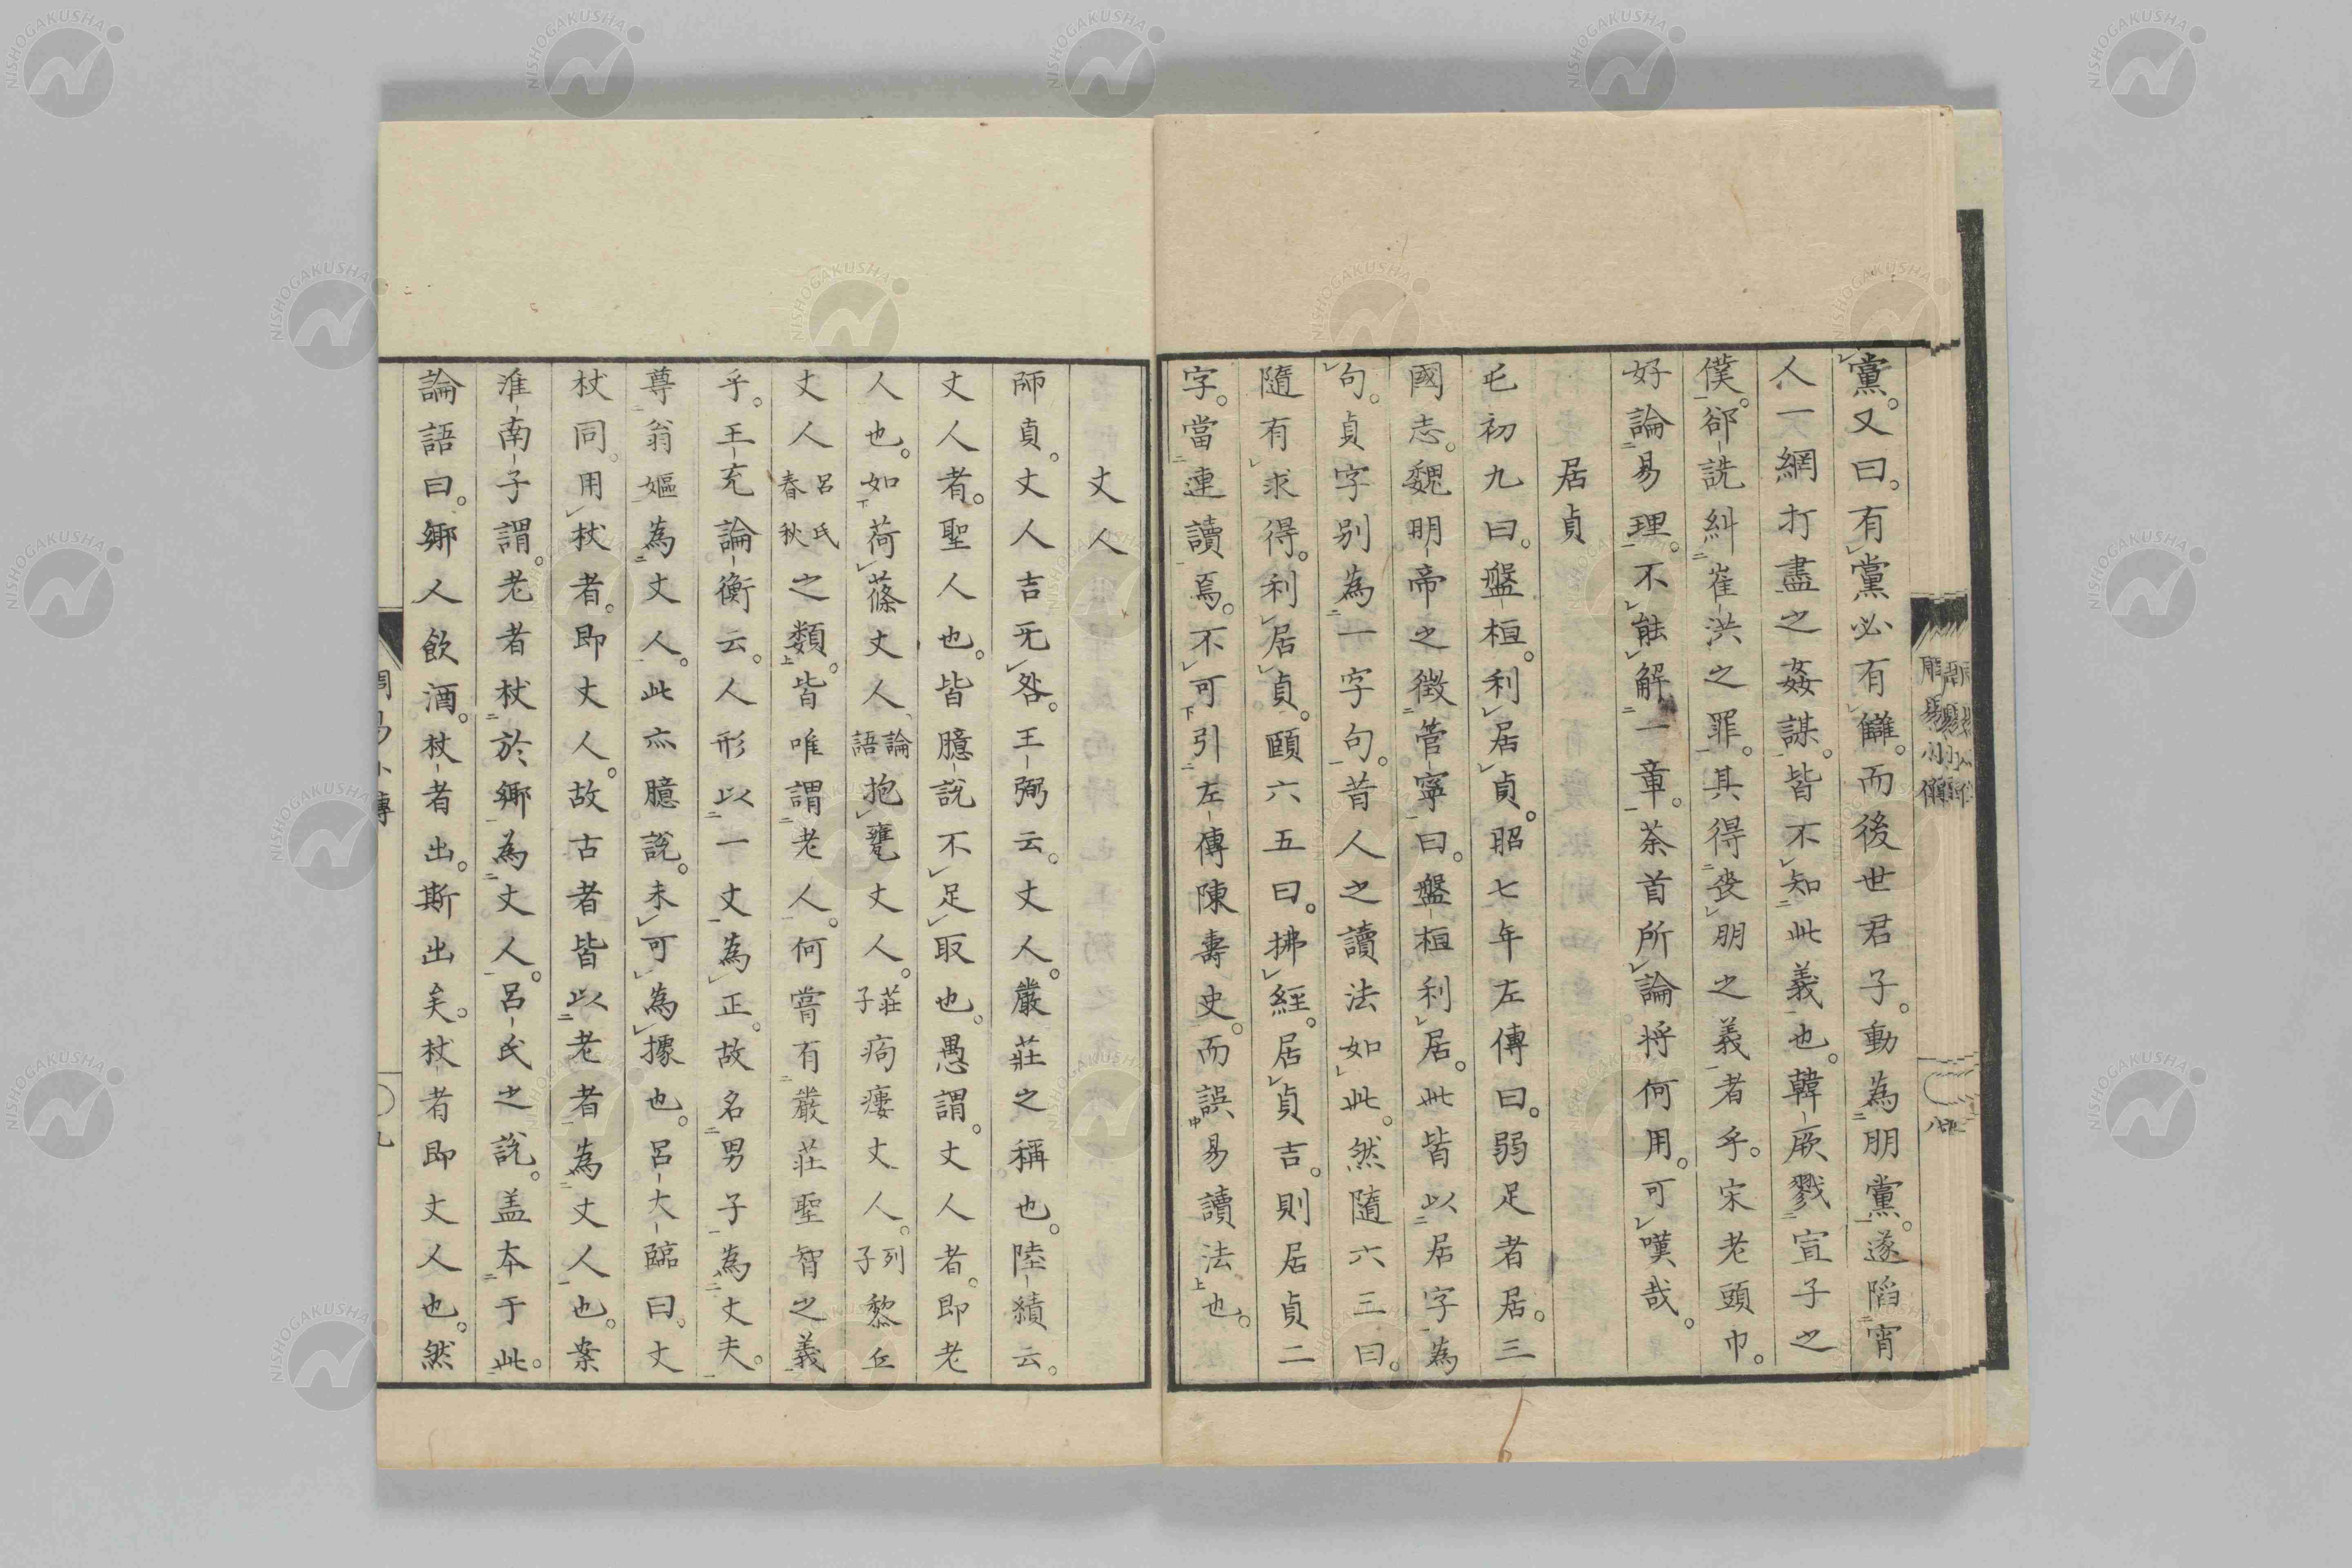 黨。又曰。有黨必有讎。而後世君子。動為朋黨。遂陷宵
人一網打盡之姦謀。皆不知此義也。韓厥戮宣子之
僕。郤詵糾崔洪之罪。其得喪朋之義者乎。宋老頭巾。
好論易理。不能解一章。荼首所論将何用。可嘆哉。
居貞
屯初九曰。盤桓。利居貞。昭七年左傳曰。弱足者居。三
國志。魏明帝之徴管寧曰。盤桓利居。此皆以居字為
句。貞字别為一字句。昔人之讀法如此。然隨六三曰。
隨有求得。利居貞。頤六五曰。拂經。居貞吉。則居貞二
字。當連讀焉。不可引左傳陳壽史。而誤易讀法也。
丈人
師貞。丈人吉无咎。王弼云。丈人。嚴莊之稱也。陸績云。
丈人者。聖人也。皆臆説不足取也。愚謂。丈人者。即老
人也。如荷蓧丈人、論語抱甕丈人。莊子痀瘻丈人。列子黎丘
丈人呂氏春秋之類。皆唯謂老人。何嘗有嚴莊聖智之義
乎。王充論衡云。人形以一丈為正。故名男子為丈夫。
尊翁嫗為丈人。此亦臆説。未可為據也。呂大臨曰。丈
杖同。用杖者。即丈人。故古者皆以老者為丈人也。案
淮南子謂。老者杖於鄉為丈人。呂氏之説。盖本于此。
論語曰。鄉人飲酒。杖者出。斯出矣。杖者即丈人也。然
周易小傳
九
NISHOGAKUSHA